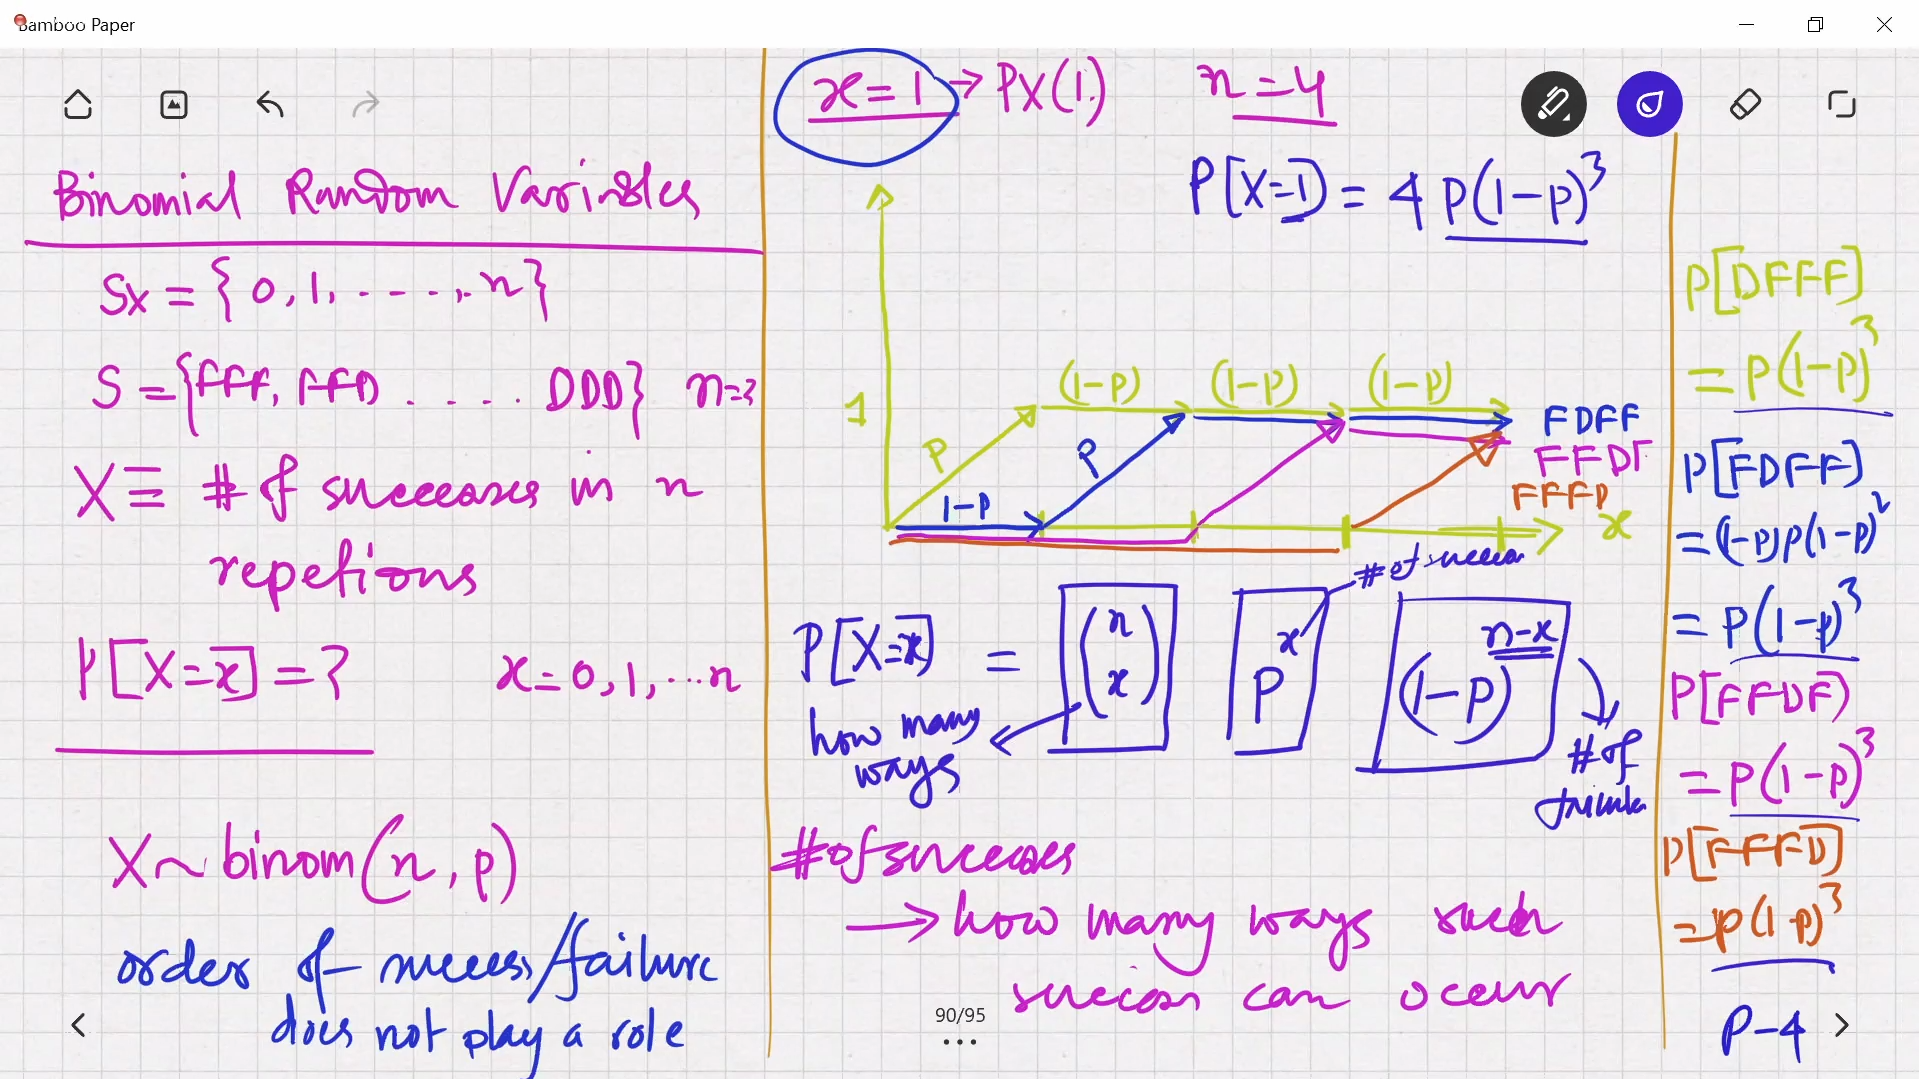 Bamboo Paper
Binomial Random Variables
Sx = {0, 1, ....., n}
S = {FFF, FFD ..... DDD} n=3
X ≡ # of successes in n
repetions
P[X=x] = ? x=0, 1, ...n
X ~ binom(n, p)
order of success/failure
does not play a role
x = 1 → PX(1) n = 4
P[X=1] = 4 p(1-p)³
1
(1-p) (1-p) (1-p)
P P
1-P
FDFF
FFDF
FFFD
x
# of success
P[X=x] = (n x) p^x (1-p)^(n-x)
how many
ways
# of
# of successes
→ how many ways such
success can occur
90/95
P[DFFF]
= p(1-p)³
P[FDFF]
= (1-p)p(1-p)²
= P(1-p)³
P[FFDF]
= p(1-p)³
P[FFFD]
= p(1-p)³
P-4